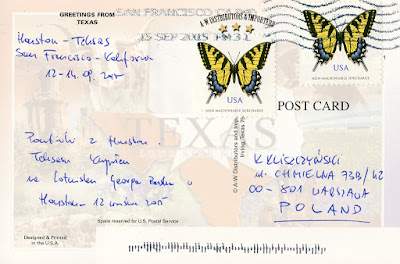 GREETINGS FROM
TEXAS
SAN FRANCISCO CA
15 SEP 2015 PM 3 L
A-W DISTRIBUTORS & IMPORTERS
Houston - Teksas
San Francisco - Kalifornia
12-14.09.2015
USA
NON-MACHINEABLE SURCHARGE
USA
NON-MACHINEABLE SURCHARGE
POST CARD
TEXAS
Pocztówka z Houston
Teksasu kupiona
na lotnisku George Busha w
Houston 12 września 2015
© A-W Distributors and Imp.
Irving, Texas 75
K. KLISZCZYŃSKI
ul. CHMIELNA 73B/
00-801 WARSZAWA
POLAND
Space reserved for U.S. Postal Service
Designed & Printed
in the U.S.A.